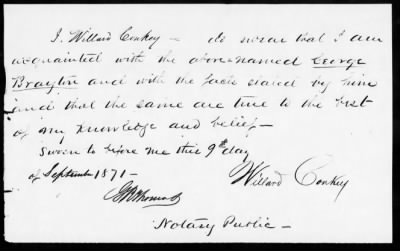 I. Willard Conkey — do swear that I am
acquainted with the above named George
Brayton and with the facts stated by him
and that the same are true to the best
of my knowledge and belief —
Sworn to before me this 9th day
of September 1871 —
Willard Conkey
Notary Public —